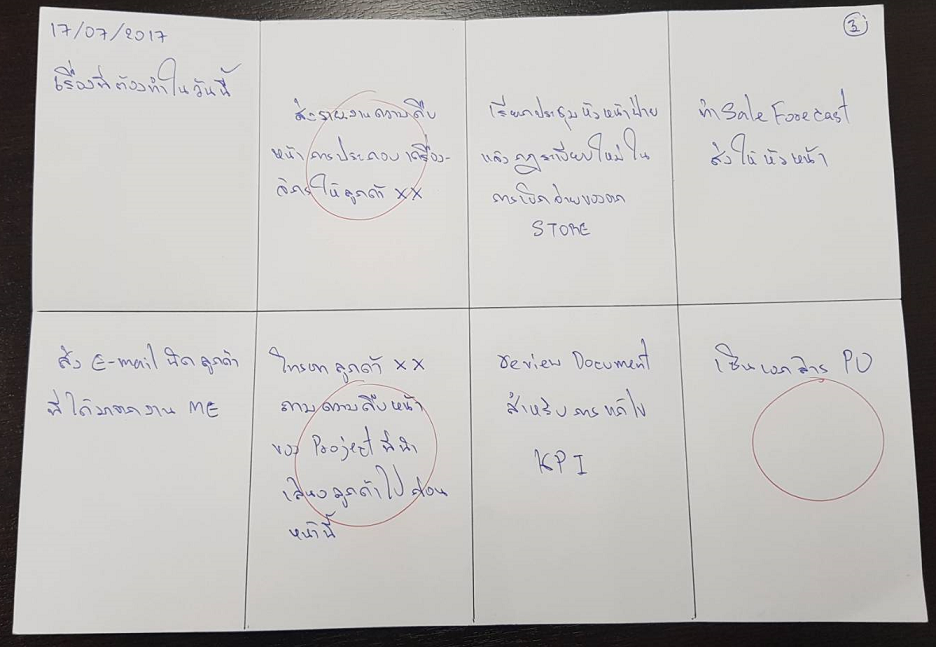 17/07/2017
3
เรื่องที่ต้องทำในวันนี้
ส่งรายงานความคืบ
หน้าการประกอบเครื่อง-
จักรให้ลูกค้า XX
เรียกประชุมหัวหน้าฝ่าย
แจ้งกฎระเบียบใหม่ใน
การเบิกจ่ายของจาก
STORE
ทำ Sale Forecast
ส่งให้หัวหน้า
ส่ง E-mail นัดลูกค้า
ที่ได้มาจากงาน ME
โทรหาลูกค้า XX
ถามความคืบหน้า
ของ Project ที่นำ
เสนอลูกค้าไปก่อน
หน้านี้
review Document
สำหรับการแก้ไข
KPI
เซ็นเอกสาร PO